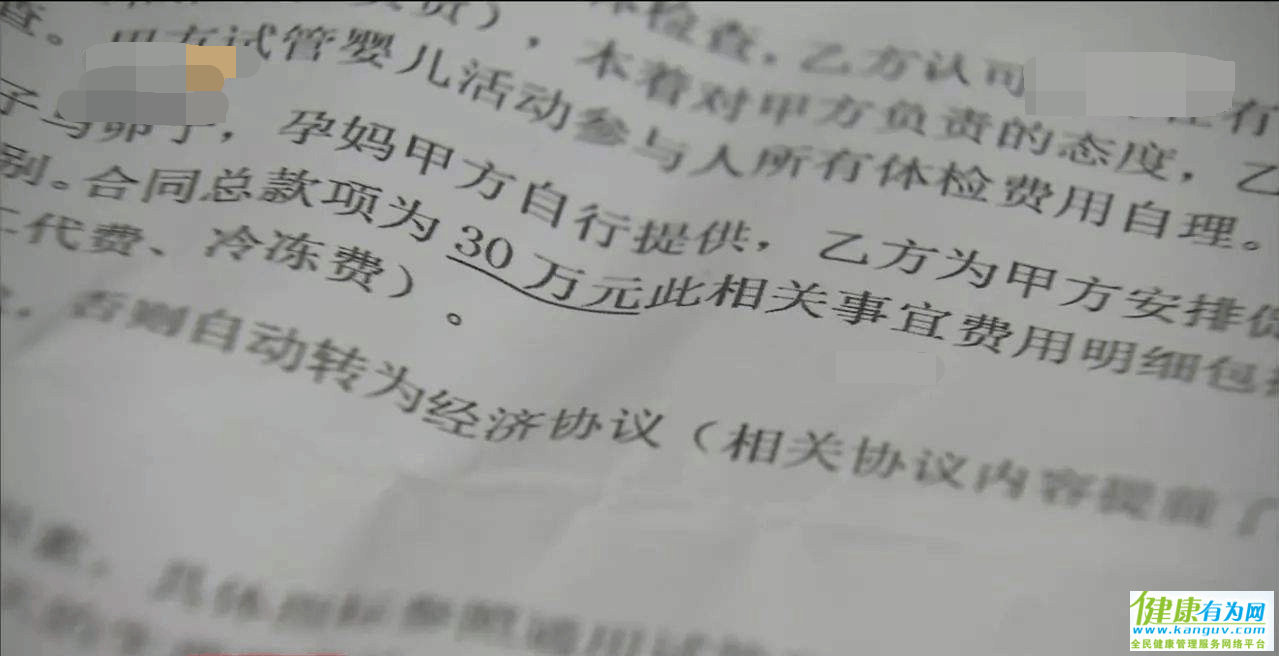 体检查，乙方认可 有
责），本着对甲方负责的态度，乙
查。甲方试管婴儿活动参与人所有体检费用自理。
子与卵子，孕妈甲方自行提供，乙方为甲方安排
别。合同总款项为30万元此相关事宜费用明细包
代费、冷冻费）。
否则自动转为经济协议（相关协议内容提前了
具体指标参照通用试
健康有为网
www.kanguv.com
全民健康管理服务网络平台